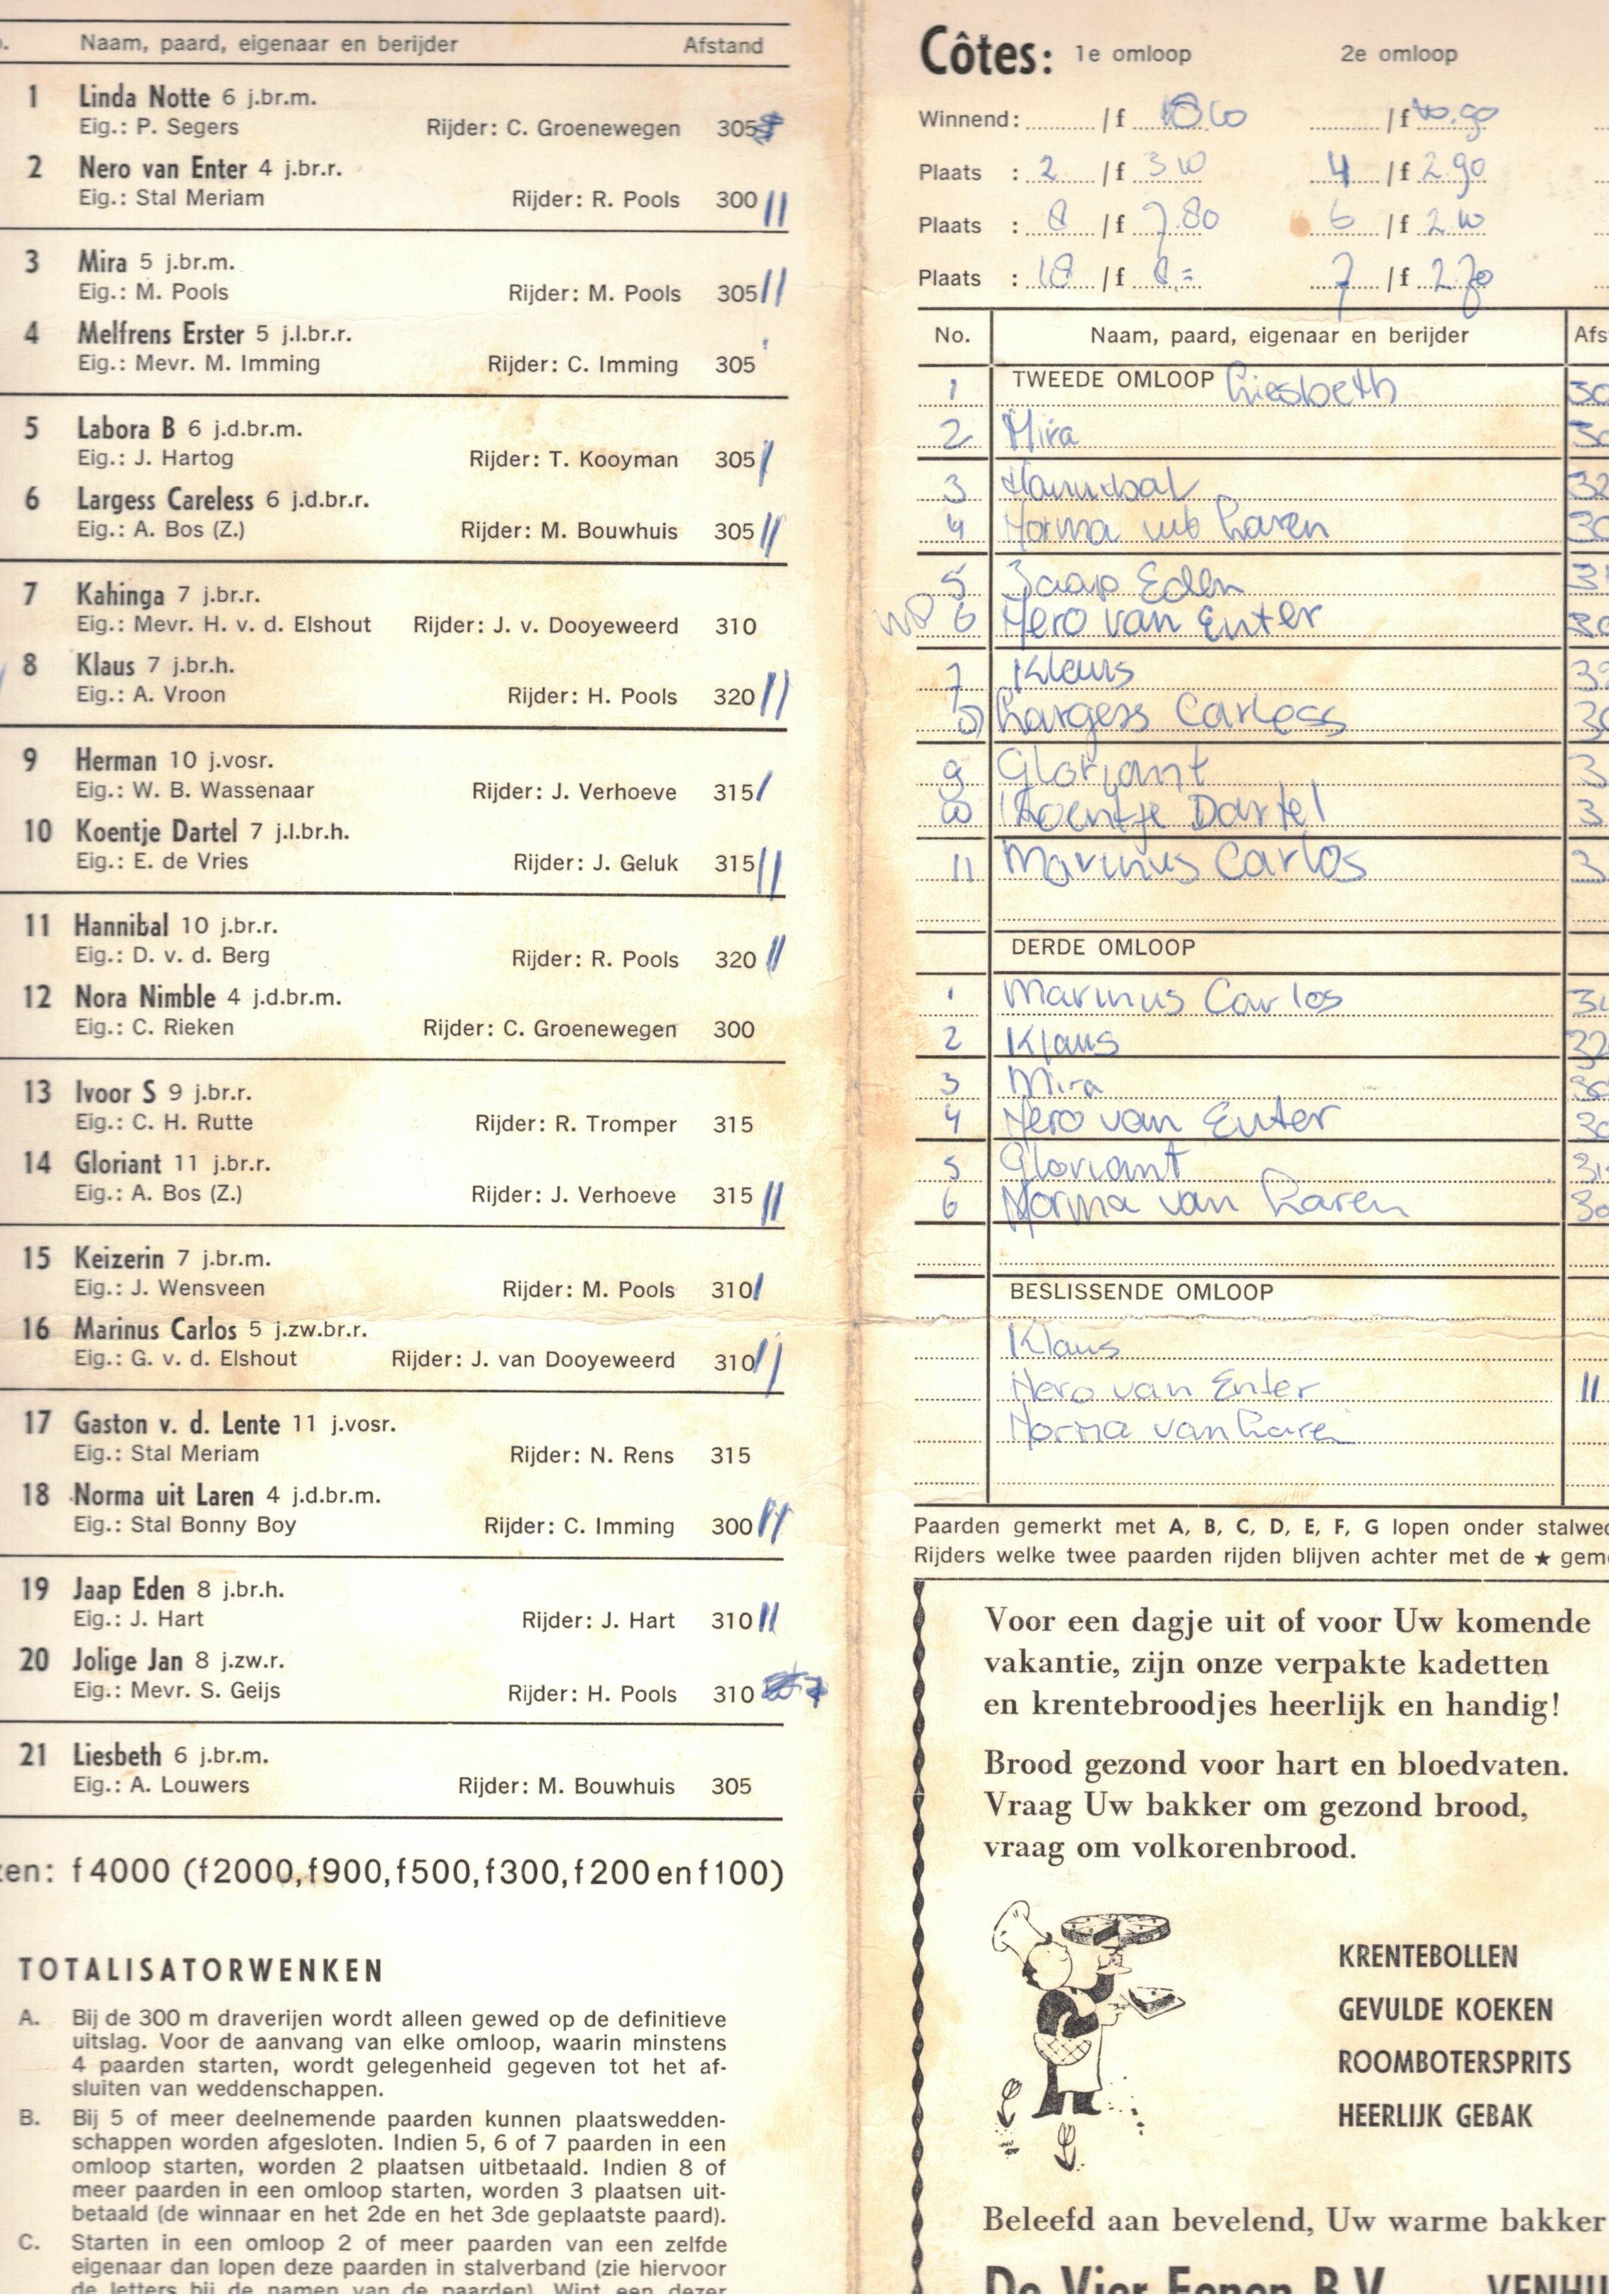 Naam, paard, eigenaar en berijder Afstand
1 Linda Notte 6 j.br.m.
Eig.: P. Segers Rijder: C. Groenewegen 305
2 Nero van Enter 4 j.br.r.
Eig.: Stal Meriam Rijder: R. Pools 300 //
3 Mira 5 j.br.m.
Eig.: M. Pools Rijder: M. Pools 305 //
4 Melfrens Erster 5 j.l.br.r.
Eig.: Mevr. M. Imming Rijder: C. Imming 305
5 Labora B 6 j.d.br.m.
Eig.: J. Hartog Rijder: T. Kooyman 305 /
6 Largess Careless 6 j.d.br.r.
Eig.: A. Bos (Z.) Rijder: M. Bouwhuis 305 //
7 Kahinga 7 j.br.r.
Eig.: Mevr. H. v. d. Elshout Rijder: J. v. Dooyeweerd 310
8 Klaus 7 j.br.h.
Eig.: A. Vroon Rijder: H. Pools 320 //
9 Herman 10 j.vosr.
Eig.: W. B. Wassenaar Rijder: J. Verhoeve 315 /
10 Koentje Dartel 7 j.l.br.h.
Eig.: E. de Vries Rijder: J. Geluk 315 //
11 Hannibal 10 j.br.r.
Eig.: D. v. d. Berg Rijder: R. Pools 320 //
12 Nora Nimble 4 j.d.br.m.
Eig.: C. Rieken Rijder: C. Groenewegen 300
13 Ivoor S 9 j.br.r.
Eig.: C. H. Rutte Rijder: R. Tromper 315
14 Gloriant 11 j.br.r.
Eig.: A. Bos (Z.) Rijder: J. Verhoeve 315 //
15 Keizerin 7 j.br.m.
Eig.: J. Wensveen Rijder: M. Pools 310 /
16 Marinus Carlos 5 j.zw.br.r.
Eig.: G. v. d. Elshout Rijder: J. van Dooyeweerd 310 //
17 Gaston v. d. Lente 11 j.vosr.
Eig.: Stal Meriam Rijder: N. Rens 315
18 Norma uit Laren 4 j.d.br.m.
Eig.: Stal Bonny Boy Rijder: C. Imming 300 //
19 Jaap Eden 8 j.br.h.
Eig.: J. Hart Rijder: J. Hart 310 //
20 Jolige Jan 8 j.zw.r.
Eig.: Mevr. S. Geijs Rijder: H. Pools 310
21 Liesbeth 6 j.br.m.
Eig.: A. Louwers Rijder: M. Bouwhuis 305
en: f 4000 (f 2000, f 900, f 500, f 300, f 200 en f 100)
TOTALISATORWENKEN
A. Bij de 300 m draverijen wordt alleen gewed op de definitieve
uitslag. Voor de aanvang van elke omloop, waarin minstens
4 paarden starten, wordt gelegenheid gegeven tot het af-
sluiten van weddenschappen.
B. Bij 5 of meer deelnemende paarden kunnen plaatswedden-
schappen worden afgesloten. Indien 5, 6 of 7 paarden in een
omloop starten, worden 2 plaatsen uitbetaald. Indien 8 of
meer paarden in een omloop starten, worden 3 plaatsen uit-
betaald (de winnaar en het 2de en het 3de geplaatste paard).
C. Starten in een omloop 2 of meer paarden van een zelfde
eigenaar dan lopen deze paarden in stalverband (zie hiervoor
de letters bij de namen van de paarden). Wint een dezer
Côtes: 1e omloop 2e omloop
Winnend: / f / f
Plaats : 2 / f 3 10 4 / f 2.90
Plaats : 8 / f 7.80 6 / f 2 10
Plaats : 18 / f 8.= 7 / f 2 70
No. Naam, paard, eigenaar en berijder Afs
TWEEDE OMLOOP
1 Liesbeth 30
2 Mira 30
3 Hannibal 32
4 Norma uit Laren 30
5 Jaap Eden 31
6 Nero van Enter 30
7 Klaus 32
8 Largess Carless 30
9 Gloriant 3
10 Koentje Dartel 3
11 Marinus Carlos 3
DERDE OMLOOP
1 Marinus Carlos 31
2 Klaus 32
3 Mira 30
4 Nero van Enter 30
5 Gloriant 31
6 Norma van Laren 30
BESLISSENDE OMLOOP
Klaus
Nero van Enter 11
Norma van Laren
Paarden gemerkt met A, B, C, D, E, F, G lopen onder stalwed
Rijders welke twee paarden rijden blijven achter met de ★ gem
Voor een dagje uit of voor Uw komende
vakantie, zijn onze verpakte kadetten
en krentebroodjes heerlijk en handig!
Brood gezond voor hart en bloedvaten.
Vraag Uw bakker om gezond brood,
vraag om volkorenbrood.
KRENTEBOLLEN
GEVULDE KOEKEN
ROOMBOTERSPRITS
HEERLIJK GEBAK
Beleefd aan bevelend, Uw warme bakker
De Vier Eenen B.V. VENHU